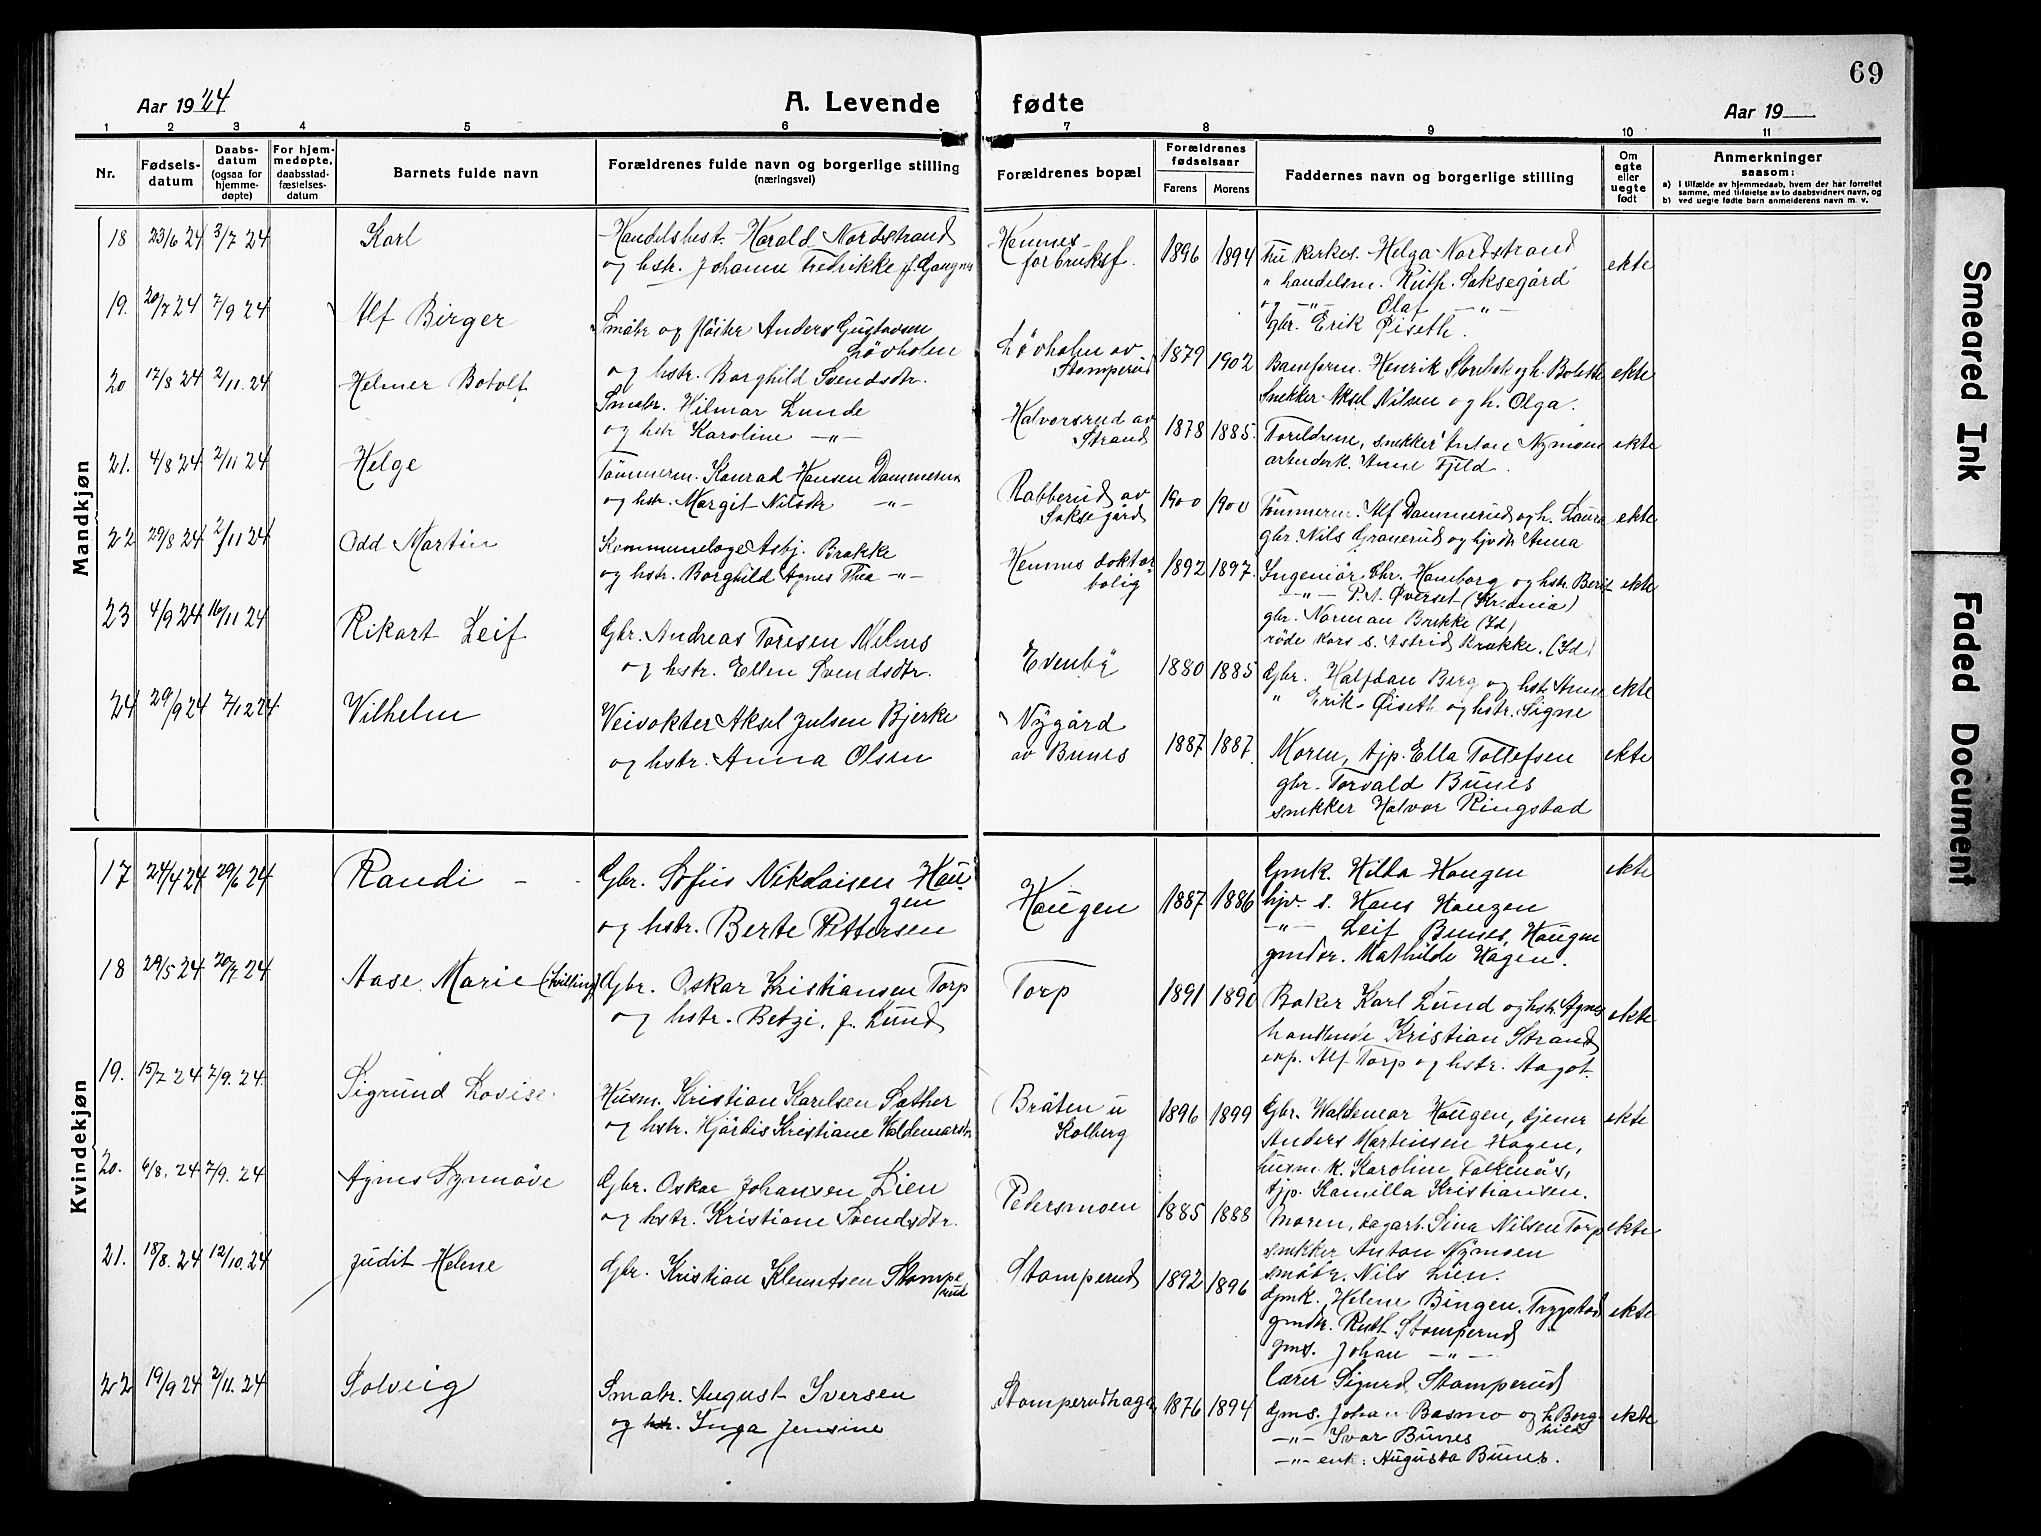 69
Aar 1924
A. Levende fødte
Aar 19
1 2 3 4 5 6 7 8 9 10 11
Nr.
Fødsels-
datum
Daabs-
datum
(ogsaa for
hjemme-
døpte)
For hjem-
medøpte,
daabsstad-
fæstelses-
datum
Barnets fulde navn
Forældrenes fulde navn og borgerlige stilling
(næringsvei)
Forældrenes bopæl
Forældrenes
fødselsaar
Farens Morens
Faddernes navn og borgerlige stilling
Om
egte
eller
uegte
født
Anmerkninger
saasom:
a) I tilfælde av hjemmedaab, hvem der har forrettet
samme, med tilføielse av to daabsvidners navn, og
b) ved uegte fødte barn anmelderens navn m. v.
Mandkjøn
18 23/6 24 3/7 24 Karl
Handelsbest. Harald Nordstrand
og hstr. Johanne Fredrikke f.
Hennes
forbruksf.
1896 1894
kirkes. Helga Nordstrand
" handelsm. Ruth Saksegård
og -"- Olaf -"-
gbr. Erik Øiseth.
ekte
19. 20/7 24 7/9 24 Alf Birger
Småbr og fløiter Anders Gustavsen
Løvholen
og hstr. Borghild Svendsdtr.
Løvholen av
Stomperud
1879 1902
Henrik
Snekker Aksel Nilsen og h. Olga.
ekte
20 17/8 24 2/11 24 Helmer Botolf
Småbr. Hilmar Lunde
og hstr Karoline -"-
Halvorsrud av
Strand
1878 1885.
Foreldrene, snekker Anton Nymoen
arbeidsk. Anne Fjeld.
ekte
21. 4/8 24 2/11 24 Helge
Tømmerm. Konrad Hansen Dammerud
og hstr. Margit Nilsdtr -"-
Rabberud av
Saksegård
1900 1900
Tømmerm. Alf Dammerud og h. Laura
gbr. Nils Granerud og hjvdtr Anna
ekte
22 29/8 24 2/11 24 Odd Martin
Kommunelæge Asbj. Brække
og hstr. Borghild Agnes Thea -"-
Hennes doktor
bolig
1892 1897.
Ingeniør Chr. Homborg og hstr. Berit
-"- P. A. Øverset (Kr.ania)
gbr. Norman Brække (Id)
røde kors s. Astrid Brække. (Id)
ekte
23 4/9 24 16/11 24 Rikart Leif
Gbr. Andreas Toresen Melnes
og hstr. Ellen Svendsdtr.
Evenby
1880 1885
Gbr. Halfdan Berg og hstr. Anne
" Erik Øiseth og hstr. Signe
ekte
24 29/9 24 7/12 24 Vilhelm
Veivokter Aksel Julsen Bjerke
og hstr. Anna Olsen
Nygård
av Bunes
1887 1887.
Moren, tjp. Ella Tollefsen
gbr. Torvald Bunes
snekker Halvor Ringstad
ekte
Kvindekjøn
17 24/4 24 29/6 24 Randi
Gbr. Sofus Nikolaisen Hau-
gen
og hstr. Berte Pettersen
Haugen
1887 1886
Gmk. Hilda Haugen
hjv. s. Hans Haugen
-"- Leif Bunes, Haugen
gmdtr. Mathilde Hagen.
ekte
18 29/5 24 20/7 24 Aase Marie (tvilling)
Gbr. Oskar Kristiansen Torp
og hstr. Betzi, f. Lund
Torp
1891 1890
Baker Karl Lund og hstr. Agnes
handlende Kristian Strand
exp. Alf Torp og hstr. Aagot.
ekte
19. 15/7 24 7/9. 24. Sigrund Lovise
Husm. Kristian Karlsen Sæther
og hstr. Hjørdis Kristiane Valdemarsdtr
Bråten u
Kolberg
1896 1899
Gbr. Waldemar Haugen, tjener
Anders Martinsen Hagen,
husm. k. Karoline Falkenås,
tjp. Kamilla Kristiansen.
ekte
20. 6/8. 24 7/9. 24 Agnes Synnøve
Gbr. Oskar Johansen Lien
og hstr. Kristiane Svendsdtr.
Pedersmoen
1885 1888
Moren, dagarb. Sina Nilsen Torp
snekker Anton Nymoen
småbr. Nils Lien.
ekte
21. 18/8. 24 12/10. 24 Judit Helene
Gbr. Kristian Klemetsen Stompe
rud
Stomperud
1892 1896
Gmk. Helene Bingen. Trygstad
gmdtr. Ruth Stomperud
gms. Johan -"-
Lærer Sigurd Stomperud
ekte
22 19/9 24 2/11. 24 Solveig
Småbr. August Iversen
og hstr. Inga Jensine
Stomperudhagen
1876 1894
Gms. Johan Basmo og h. Borg-
hild
-"- Ivar Bunes
-"- enk. Augusta Bunes.
ekte
Smeared Ink
Faded Document